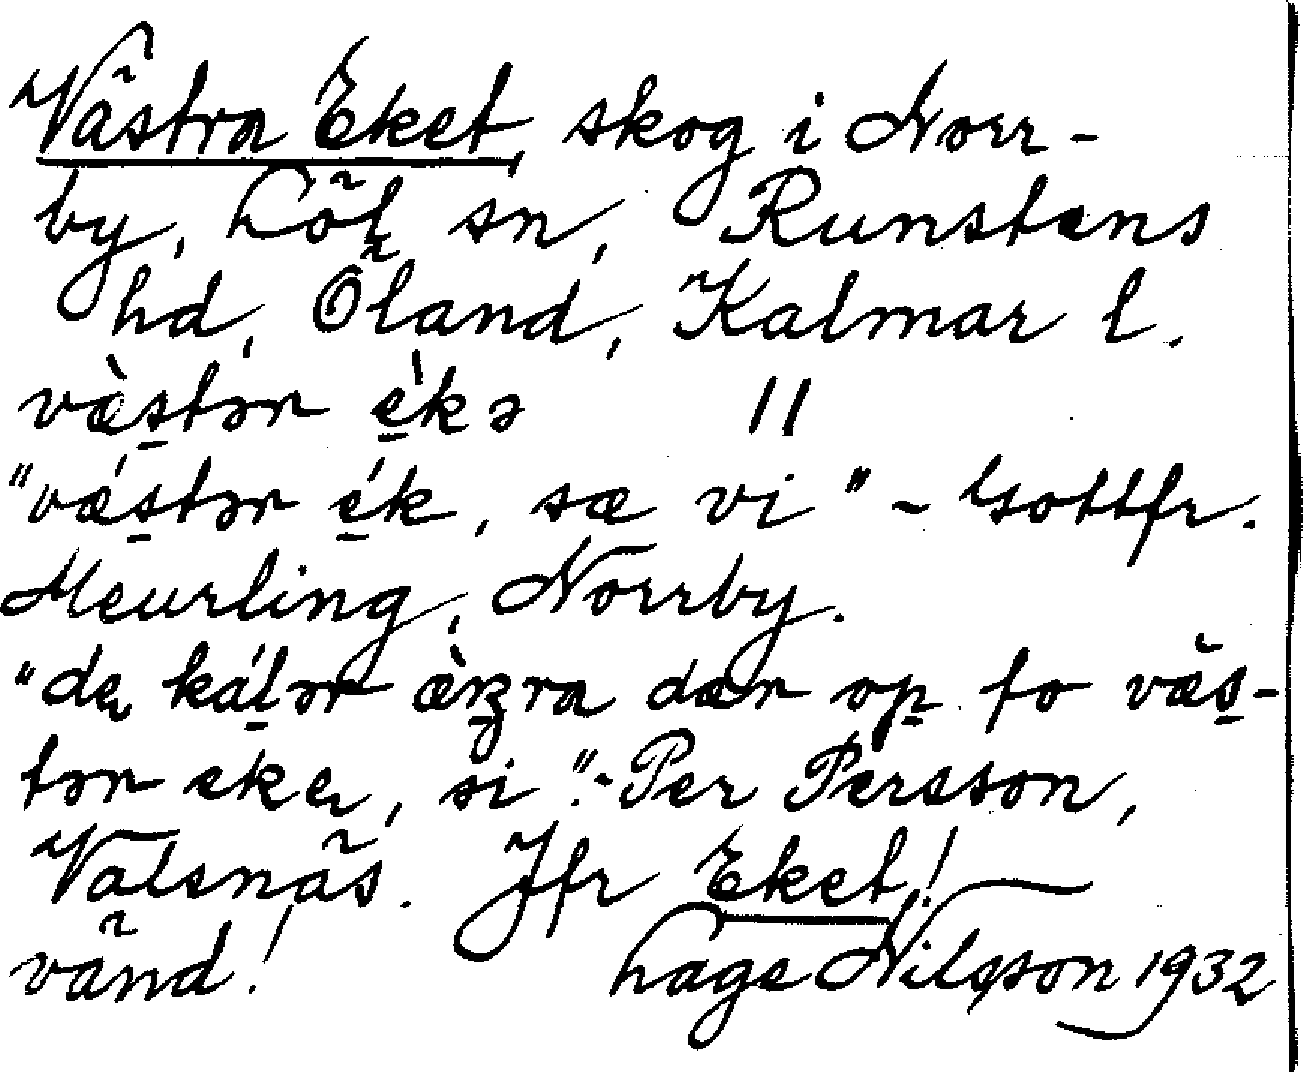 Västra Eket, skog i Norr-
by, Löt sn, Runstens
hd, Öland, Kalmar l.
væ̀s̱tər è̱kə //
"vǽs̱tər é̱k, sæ vi" - Gottfr.
Meurling, Norrby.
"de ká̱lər æ̀ndra dær op fo væs̱-
tər eke, si". - Per Persson,
Valsnäs. Jfr Eket!
vänd! Hage Nilsson 1932